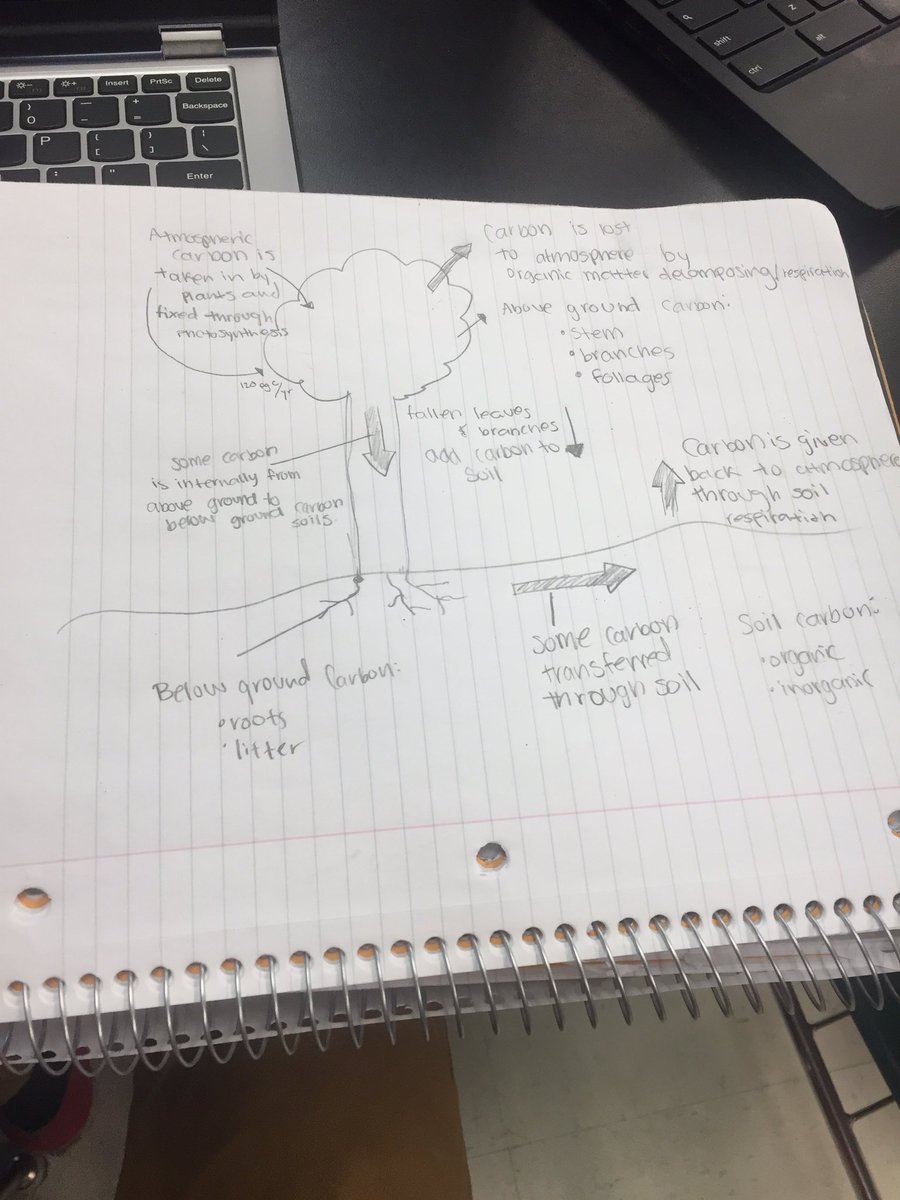 Insert
PrtSc
Delete
)
0
—
-
+
=
Backspace
P
{
[
}
]
|
\
:
;
"
Enter
Q
Z
shift
alt
ctrl
Atmospheric
carbon is
taken in by
plants and
fixed through
photosynthesis
120 pg C/yr
Carbon is lost
to atmosphere by
organic matter decomposing/respiration
Above ground Carbon:
• stem
• branches
• follages
fallen leaves
& branches
add carbon to
soil
some carbon
is internally from
above ground to
below ground carbon
soils.
Carbon is given
back to atmosphere
through soil
respiration
Some carbon
transferred
through soil
Soil Carbon:
• organic
• inorganic
Below ground Carbon:
• roots
• litter